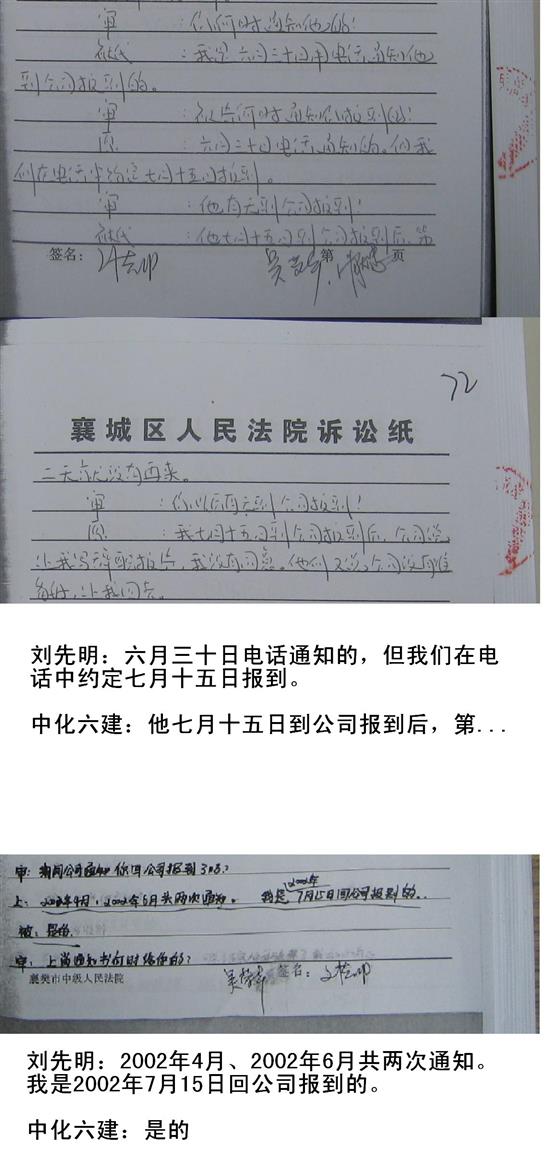 审：你们何时通知他的？
被代：我是六月三十日用电话通知他
到公司报到的。
审：被告何时通知你报到的？
原：六月三十日电话通知的。但我
们在电话中约定七月十五日报到。
审：他有无到公司报到？
被代：他七月十五日到公司报到后，第
签名：
第 页
72
襄城区人民法院诉讼纸
二天就没有再来。
审：你以后有无到公司报到？
原：我七月十五日到公司报到后，公司说
让我写辞职报告，我没有同意。他们又说公司没有准
备好，让我回去。
刘先明：六月三十日电话通知的，但我们在电
话中约定七月十五日报到。
中化六建：他七月十五日到公司报到后，第...
审：期间公司通知你回公司报到了吗？
上：2002年4月，2002年6月共两次通知。我是2002年7月15日回公司报到的。
被：是的。
审：上岗通知书何时给你的？
襄樊市中级人民法院
签名：
刘先明：2002年4月、2002年6月共两次通知。
我是2002年7月15日回公司报到的。
中化六建：是的